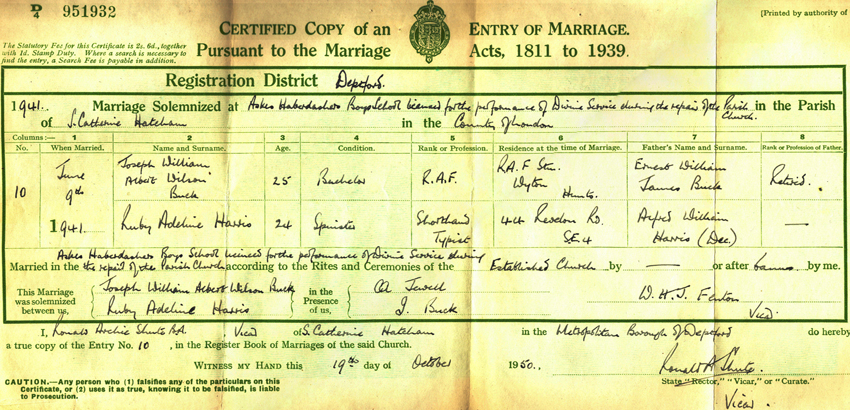 D/4 951932
[Printed by authority of
CERTIFIED COPY of an ENTRY OF MARRIAGE.
The Statutory Fee for this Certificate is 2s. 6d., together
with 1d. Stamp Duty. Where a search is necessary to
find the entry, a Search Fee is payable in addition.
Pursuant to the Marriage Acts, 1811 to 1939.
Registration District Deptford.
1941. Marriage Solemnized at Askes Haberdashers Boys School licensed for the performance of Divine Service during the repair of the Parish Church. in the Parish
of S. Catherine Hatcham in the County of London
Columns:— 1 2 3 4 5 6 7 8
No. When Married. Name and Surname. Age. Condition. Rank or Profession. Residence at the time of Marriage. Father's Name and Surname. Rank or Profession of Father.
10 June 9th 1941. Joseph William Albert Wilson Buck 25 Bachelor R.A.F. R.A.F Stn. Wyton Hunts. Ernest William James Buck Retired.
Ruby Adeline Harris 24 Spinster Shorthand Typist 44 Rd. S.E.4 Alfred William Harris (Dec) —
Askes Haberdashers Boys School licensed for the performance of Divine Service during
Married in the repair of the Parish Church according to the Rites and Ceremonies of the Established Church by — or after banns by me.
This Marriage was solemnized between us, Joseph William Albert Wilson Buck Ruby Adeline Harris in the Presence of us, Jewell J. Buck W. H. J. Fenton Vicar
I, Ronald Archie Shute Vicar of S. Catherine Hatcham in the Metropolitan Borough of Deptford do hereby
a true copy of the Entry No. 10, in the Register Book of Marriages of the said Church.
WITNESS MY HAND this 19th day of October 1950.
Ronald A Shute
CAUTION.—Any person who (1) falsifies any of the particulars on this
Certificate, or (2) uses it as true, knowing it to be falsified, is liable
to Prosecution.
State "Rector," "Vicar," or "Curate."
Vicar.